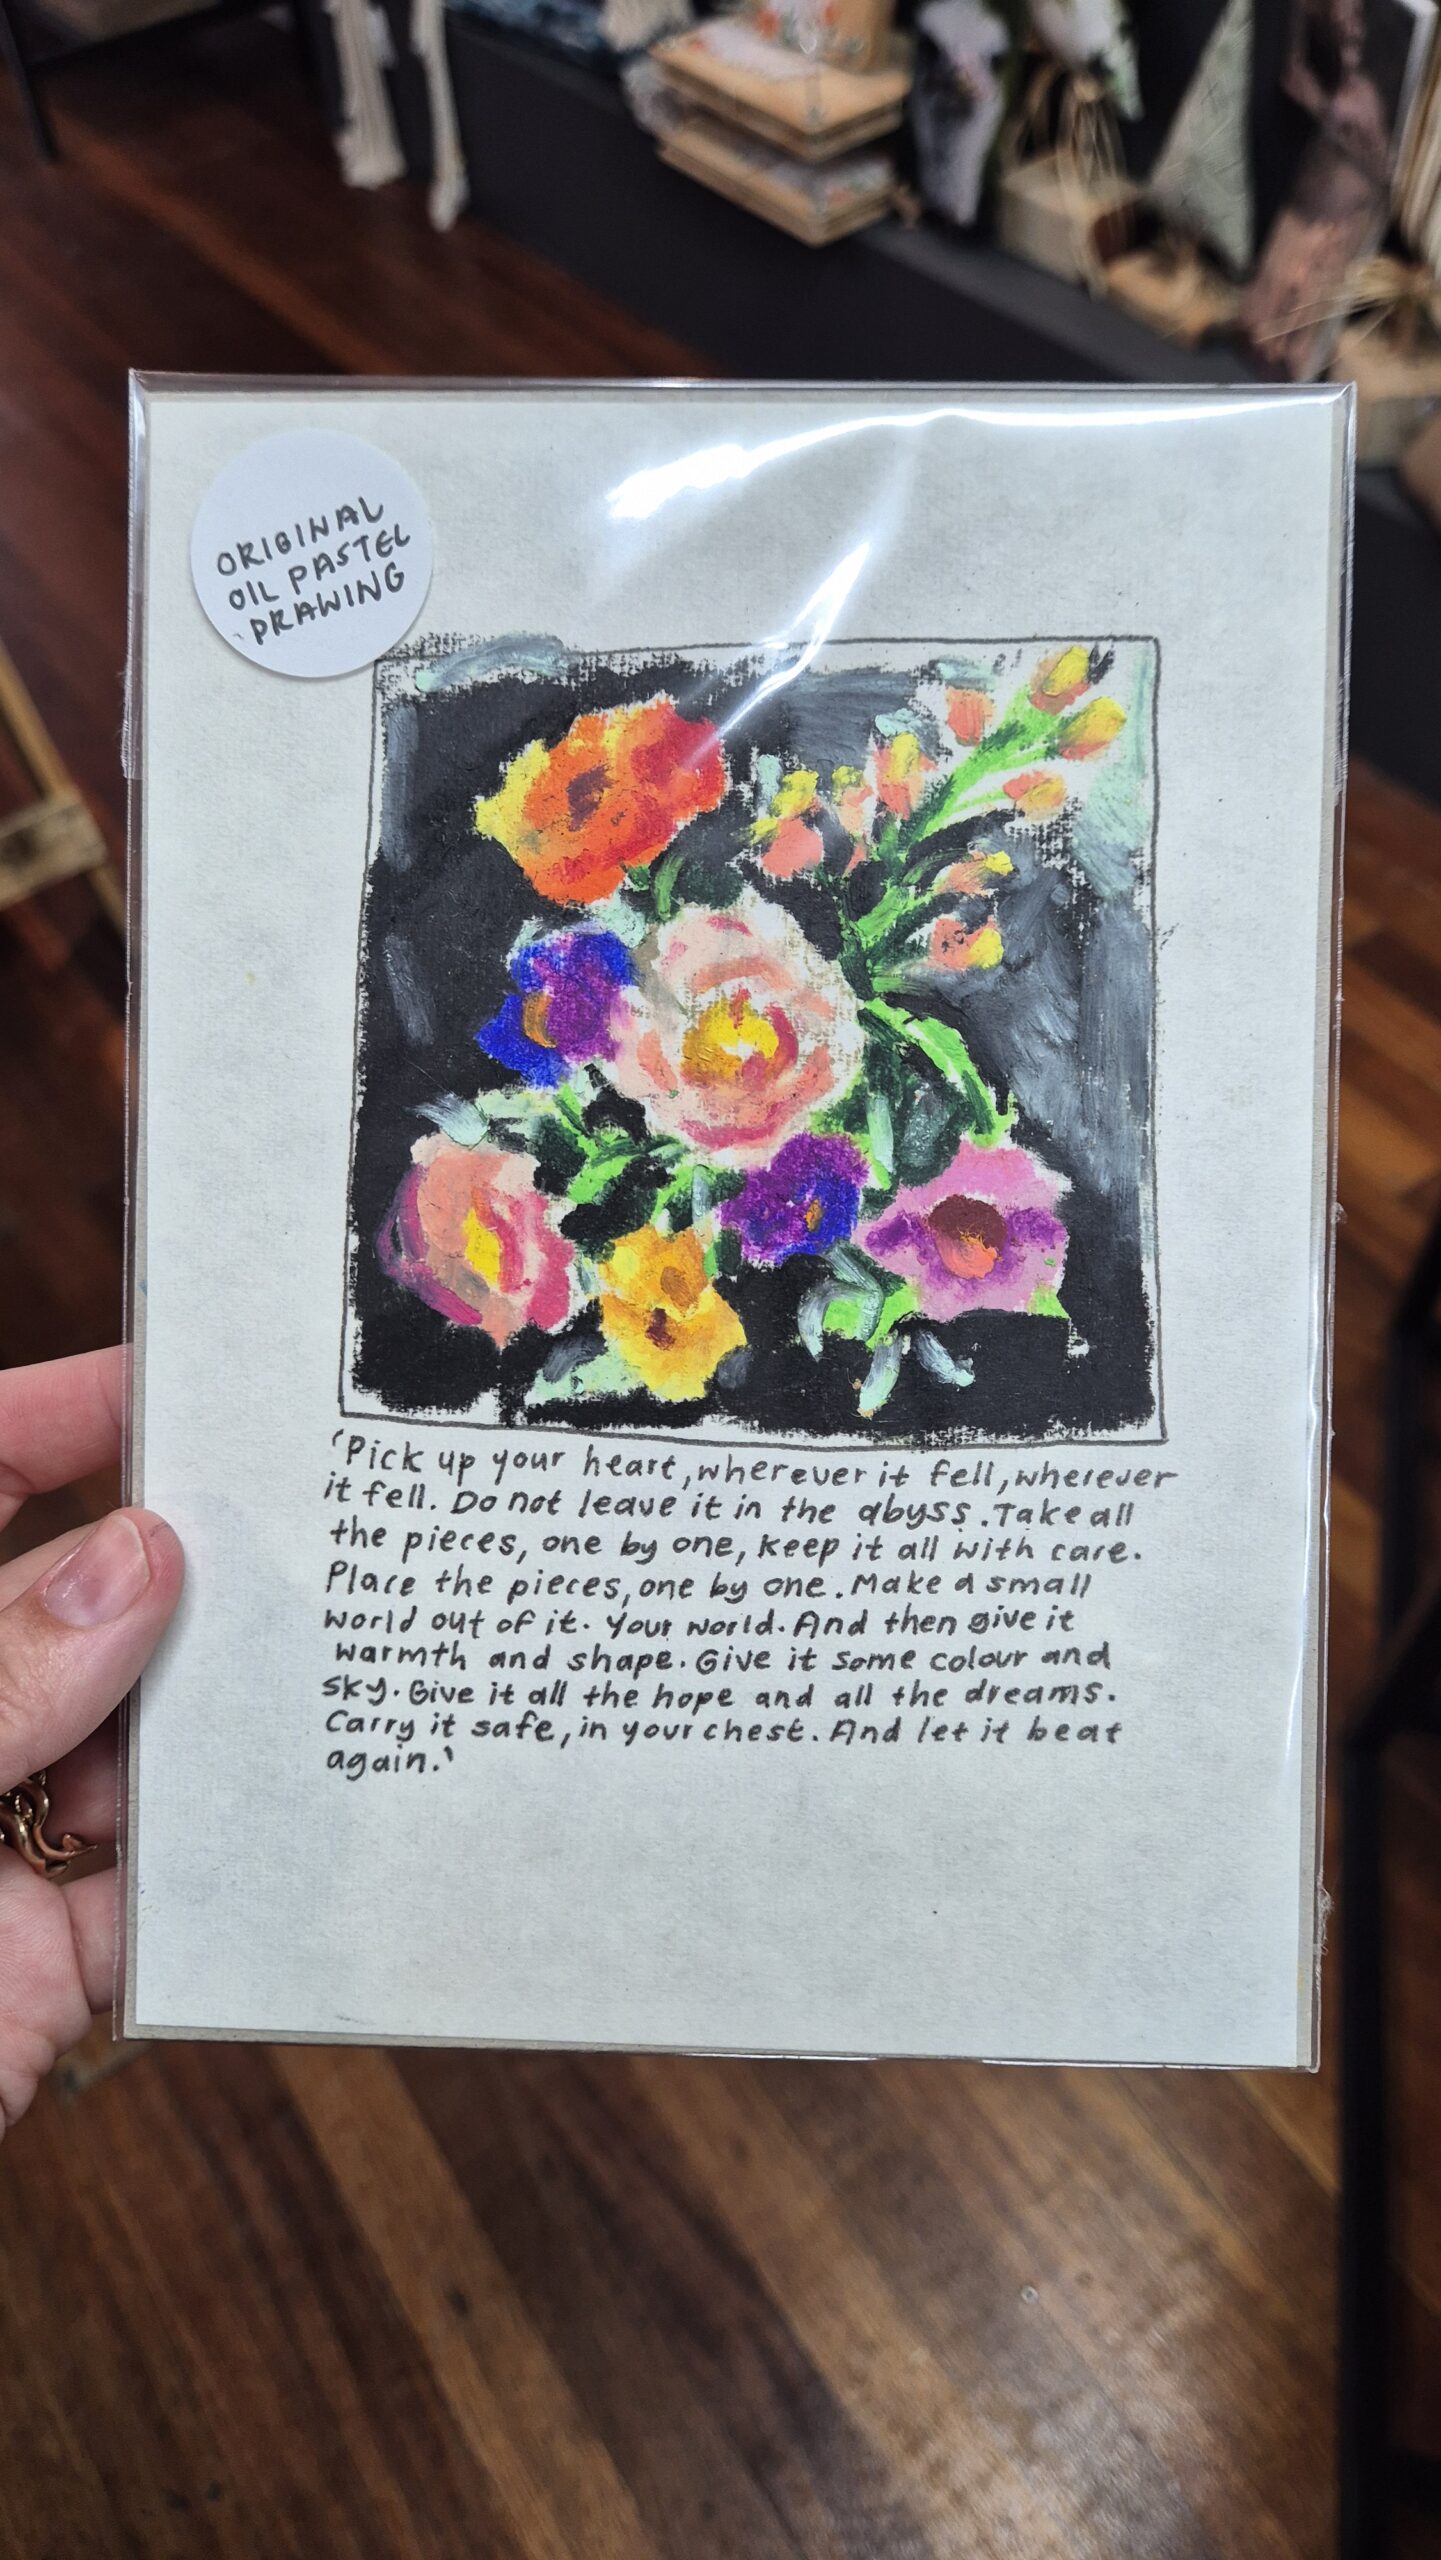 ORIGINAL
OIL PASTEL
DRAWING
'Pick up your heart, wherever it fell, wherever
it fell. Do not leave it in the abyss. Take all
the pieces, one by one, keep it all with care.
Place the pieces, one by one. Make a small
world out of it. Your world. And then give it
warmth and shape. Give it some colour and
sky. Give it all the hope and all the dreams.
Carry it safe, in your chest. And let it beat
again.'